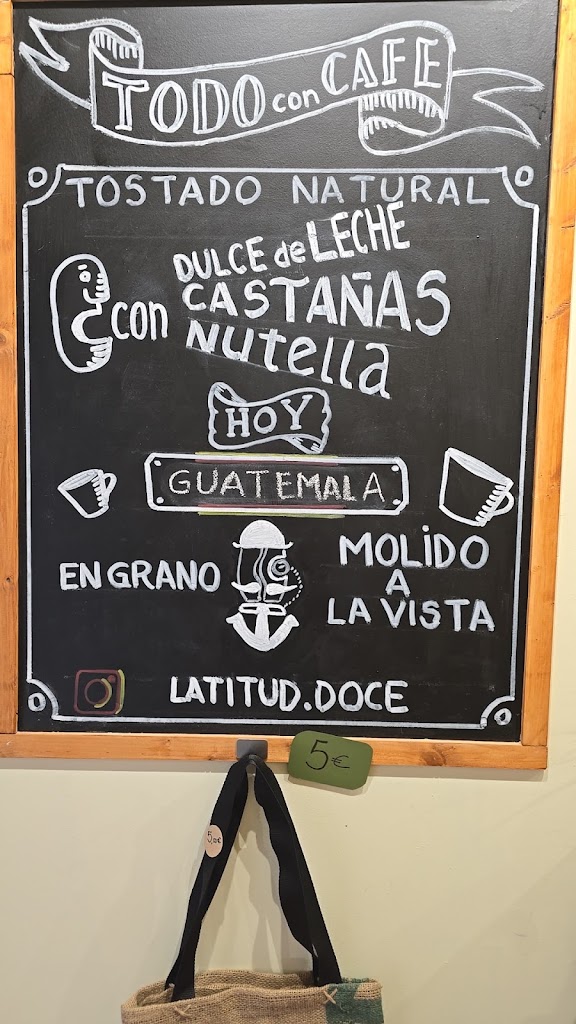 TODO con CAFE
TOSTADO NATURAL
con
DULCE de LECHE
CASTAÑAS
Nutella
HOY
GUATEMALA
EN GRANO
MOLiDO
A
LA VISTA
LATITUD.DOCE
5€